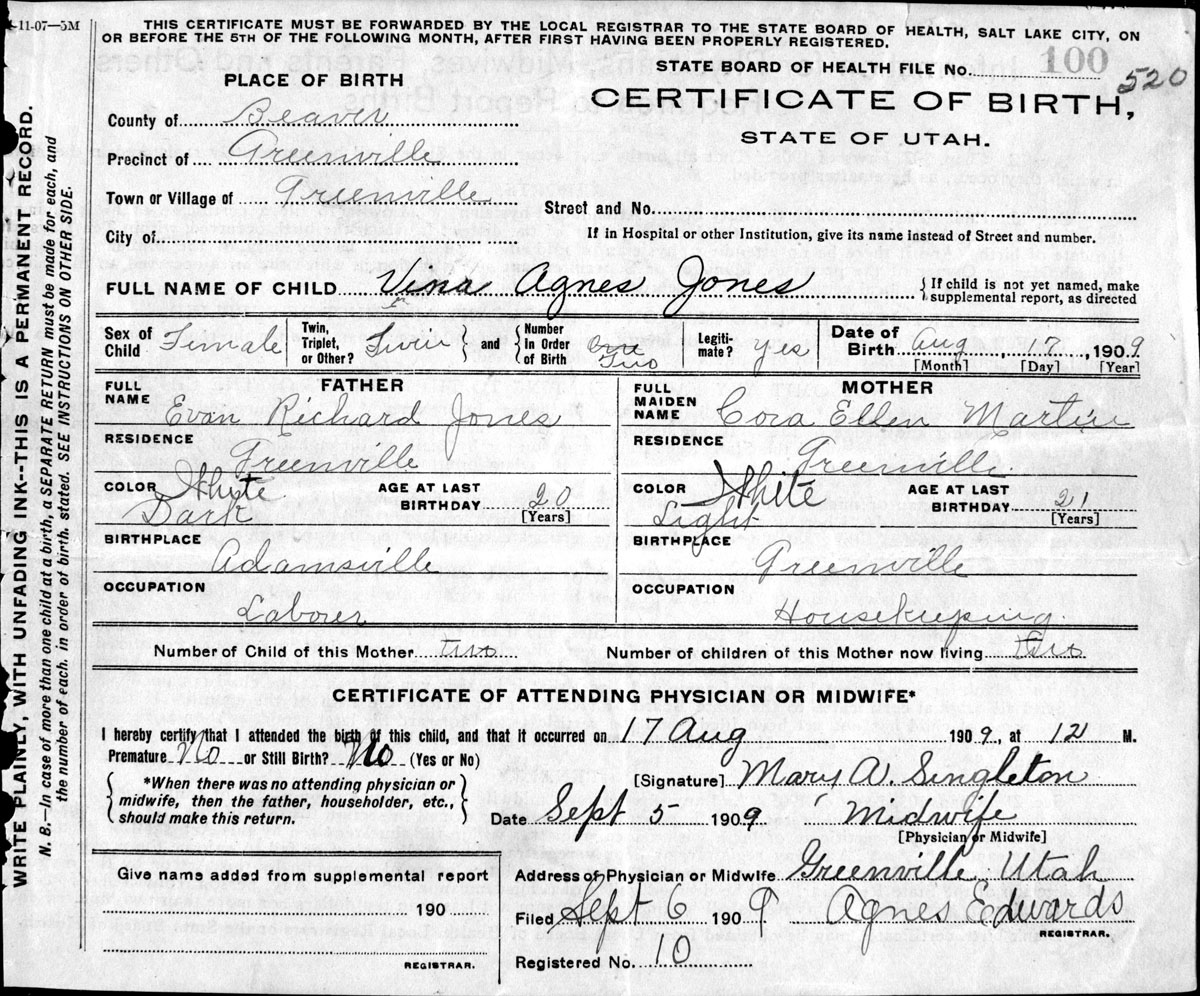 -11-07—5M
THIS CERTIFICATE MUST BE FORWARDED BY THE LOCAL REGISTRAR TO THE STATE BOARD OF HEALTH, SALT LAKE CITY, ON
OR BEFORE THE 5TH OF THE FOLLOWING MONTH, AFTER FIRST HAVING BEEN PROPERLY REGISTERED.
WRITE PLAINLY, WITH UNFADING INK--THIS IS A PERMANENT RECORD.
N. B.—In case of more than one child at a birth, a SEPARATE RETURN must be made for each, and
the number of each, in order of birth, stated. SEE INSTRUCTIONS ON OTHER SIDE.
STATE BOARD OF HEALTH FILE No. 100 520
PLACE OF BIRTH
CERTIFICATE OF BIRTH,
STATE OF UTAH.
County of Beaver
Precinct of Greenville
Town or Village of Greenville
Street and No.
City of
If in Hospital or other Institution, give its name instead of Street and number.
FULL NAME OF CHILD Vina Agnes Jones
{If child is not yet named, make
supplemental report, as directed
Sex of Child Female
Twin, Triplet, or Other? Twin
and
Number In Order of Birth Two
Legiti-mate? yes
Date of Birth Aug, 17, 1909
[Month] [Day] [Year]
FATHER
FULL NAME Evan Richard Jones
RESIDENCE
Greenville
COLOR White
Dark
AGE AT LAST BIRTHDAY 20
[Years]
BIRTHPLACE
Adamsville
OCCUPATION
Laborer
MOTHER
FULL MAIDEN NAME Cora Ellen Martin
RESIDENCE
Greenville
COLOR White
Light
AGE AT LAST BIRTHDAY 21
[Years]
BIRTHPLACE
Greenville
OCCUPATION
Housekeeping
Number of Child of this Mother two
Number of children of this Mother now living two
CERTIFICATE OF ATTENDING PHYSICIAN OR MIDWIFE*
I hereby certify that I attended the birth of this child, and that it occurred on 17 Aug 1909, at 12 M.
Premature No or Still Birth? No (Yes or No)
*When there was no attending physician or
midwife, then the father, householder, etc.,
should make this return.
[Signature] Mary A. Singleton
Date Sept 5 1909 Midwife
[Physician or Midwife]
Give name added from supplemental report
190
REGISTRAR.
Address of Physician or Midwife Greenville Utah
Filed Sept 6 1909 Agnes Edwards
REGISTRAR.
Registered No. 10